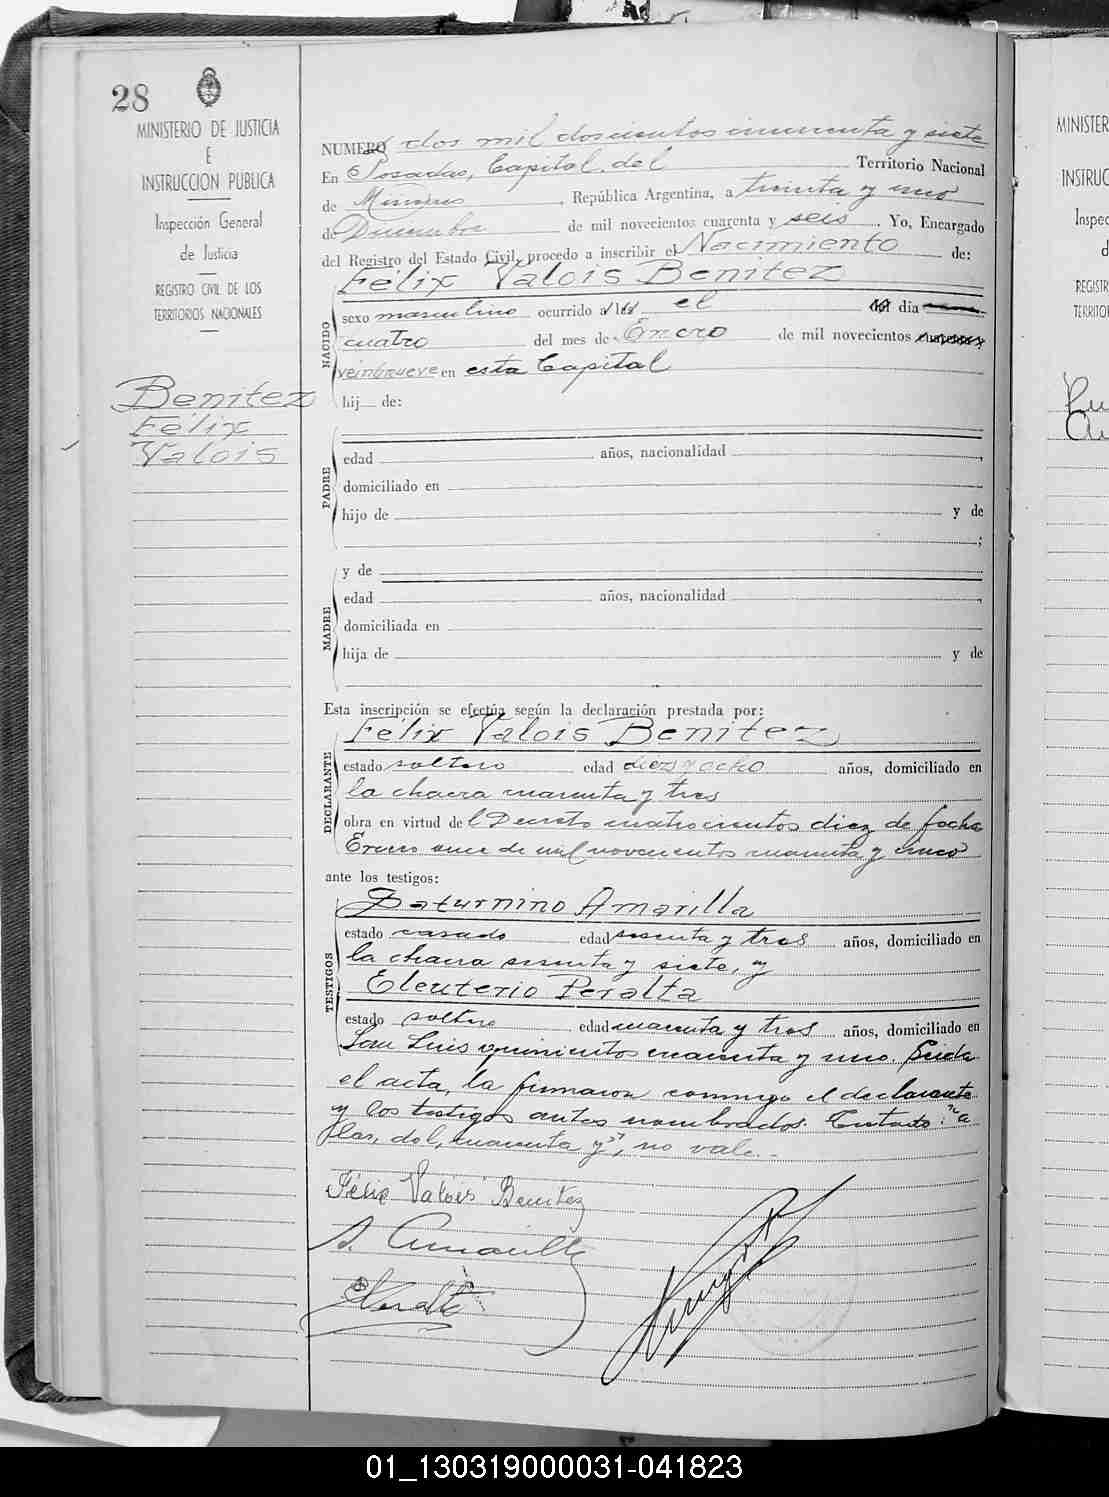 28
MINISTERIO DE JUSTICIA
E
INSTRUCCION PUBLICA
Inspección General
de Justicia
REGISTRO CIVIL DE LOS
TERRITORIOS NACIONALES
Benitez
Félix
Valois
NUMERO dos mil doscientos cincuenta y siete
En Posadas, Capital del Territorio Nacional
de Misiones, República Argentina, a treinta y uno
de Diciembre de mil novecientos cuarenta y seis. Yo, Encargado
del Registro del Estado Civil, procedo a inscribir el Nacimiento de:
NACIDO
Félix Valois Benitez
sexo masculino ocurrido el día
cuatro del mes de Enero de mil novecientos
veintinueve en esta Capital
hij de:
PADRE
edad años, nacionalidad ,
domiciliado en
hijo de y de
;
MADRE
y de
edad años, nacionalidad ,
domiciliada en
hija de y de
Esta inscripción se efectúa según la declaración prestada por:
DECLARANTE
Félix Valois Benitez
estado soltero edad diez y ocho años, domiciliado en
la chacra cuarenta y tres
obra en virtud del Decreto cuatrocientos diez de fecha
Enero once de mil novecientos cuarenta y cinco
ante los testigos:
TESTIGOS
Saturnino Amarilla
estado casado edad sesenta y tres años, domiciliado en
la chacra sesenta y siete, y
Eleuterio Peralta
estado soltero edad cuarenta y tres años, domiciliado en
San Luis quinientos cuarenta y uno. Leida
el acta, la firmaron conmigo el declarante
y los testigos antes nombrados. Testado: "a
las, del, cuarenta y", no vale.-
Félix Valois Benitez
S. Amarilla
E Peralta
MINISTER
INSTRUC
Inspec
d
REGISTR
TERRITOR
01_130319000031-041823